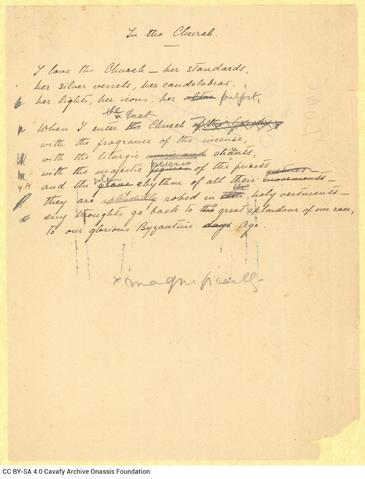 In the Church.
I love the Church — her standards,
her silver vessels, her candelabras,
her lights, her icons, her pulpit.
When I enter the Church
with the fragrance of the incense,
with the liturgic
with the majestic of the priests
and the grave rhythm of all their movements —
they are splendidly robed in holy vestments —
my thoughts go back to the great splendour of our race,
to our glorious Byzantine days Age.
x magnificently
CC BY-SA 4.0 Cavafy Archive Onassis Foundation